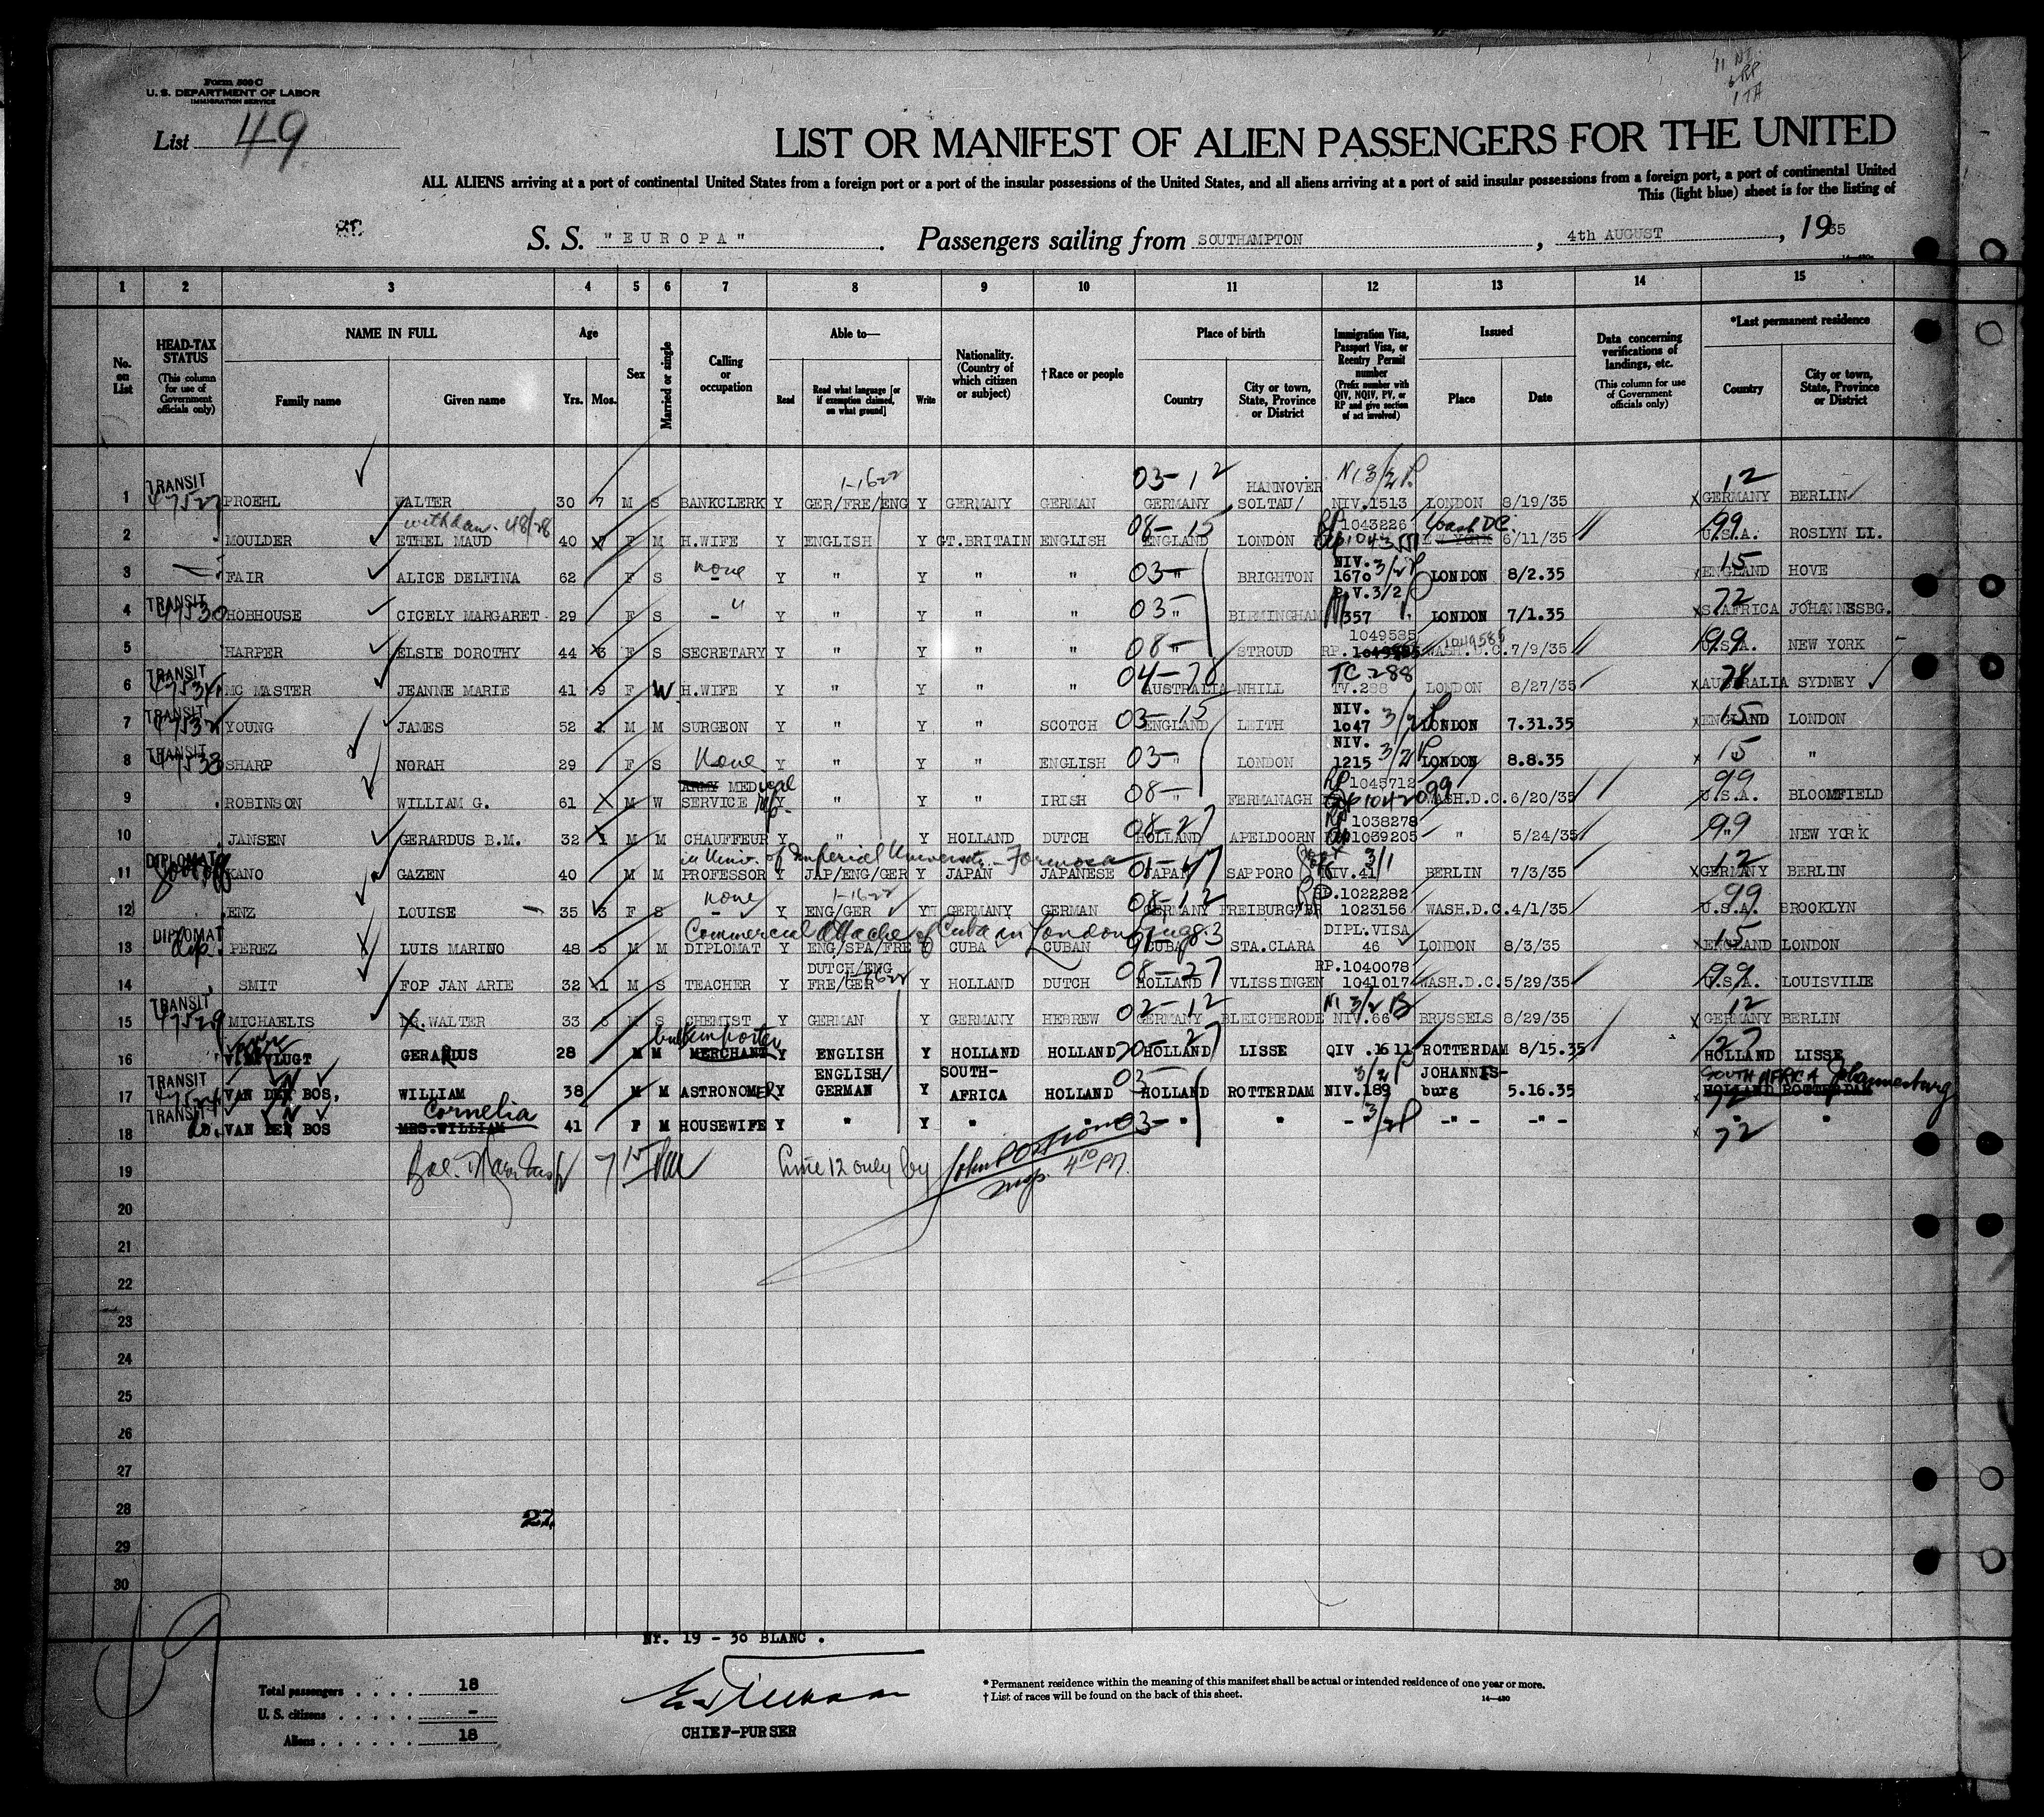 11 NI
6 RP
1 TA
Form 500 C
U. S. DEPARTMENT OF LABOR
IMMIGRATION SERVICE
List 49
LIST OR MANIFEST OF ALIEN PASSENGERS FOR THE UNITED
ALL ALIENS arriving at a port of continental United States from a foreign port or a port of the insular possessions of the United States, and all aliens arriving at a port of said insular possessions from a foreign port, a port of continental United
This (light blue) sheet is for the listing of
S. S. "EUROPA" . Passengers sailing from SOUTHAMPTON , 4th AUGUST , 1935
1 2 3 4 5 6 7 8 9 10 11 12 13 14 15
No. on List
HEAD-TAX STATUS (This column for use of Government officials only)
NAME IN FULL Family name Given name
Age Yrs. Mos.
Sex
Married or single
Calling or occupation
Able to— Read Read what language [or if exemption claimed, on what ground] Write
Nationality. (Country of which citizen or subject)
†Race or people
Place of birth Country City or town, State, Province or District
Immigration Visa, Passport Visa, or Reentry Permit number (Prefix number with QIV, NQIV, PV, or RP and give section of act involved)
Issued Place Date
Data concerning verifications of landings, etc. (This column for use of Government officials only)
*Last permanent residence Country City or town, State, Province or District
1 TRANSIT 47527 PROEHL WALTER 30 7 M S BANKCLERK Y GER/FRE/ENG 1-1622 Y GERMANY GERMAN 03-12 GERMANY HANNOVER SOLTAU/ NI 3/2 NIV.1513 LONDON 8/19/35 12 x GERMANY BERLIN
2 MOULDER ETHEL MAUD 40 F M H.WIFE Y ENGLISH Y GT.BRITAIN ENGLISH 08-15 ENGLAND LONDON RP 1043226 Wash DC. 6/11/35 99 U.S.A. ROSLYN LI.
3 FAIR ALICE DELFINA 62 F S none - Y " Y " " 03- " BRIGHTON NIV. 3/2 1670 LONDON 8/2.35 15 x ENGLAND HOVE
4 TRANSIT 47530 HOBHOUSE CICELY MARGARET 29 F S - " Y " Y " " 03- " BIRMINGHAM P.V.3/2 357 LONDON 7/1.35 72 x S.AFRICA JOHANNESBG.
5 HARPER ELSIE DOROTHY 44 3 F S SECRETARY Y " Y " " 08- " STROUD 1049585 RP. 1049585 WASH.D.C. 7/9/35 99 U.S.A. NEW YORK -
6 TRANSIT MC MASTER JEANNE MARIE 41 9 F W. H.WIFE Y " Y " " 04-70 AUSTRALIA NHILL TC 288 TV.288 LONDON 8/27/35 x AUSTRALIA SYDNEY
7 TRANSIT YOUNG JAMES 52 1 M M SURGEON Y " Y " SCOTCH 03-15 ENGLAND LEITH NIV. 1047 3/2 LONDON 7.31.35 15 x ENGLAND LONDON
8 TRANSIT 47533 SHARP NORAH 29 F S None Y " Y " ENGLISH 03- " LONDON NIV. 1215 3/2 LONDON 8.8.35 x 15 "
9 ROBINSON WILLIAM G. 61 M W ARMY MEDical SERVICE Y " Y " IRISH 08- " FERMANAGH RP 1045712 WASH.D.C. 6/20/35 99 U.S.A. BLOOMFIELD
10 JANSEN GERARDUS B.M. 32 1 M M CHAUFFEUR Y " Y HOLLAND DUTCH 08-27 HOLLAND APELDOORN RP 1038278 1039205 - " 5/24/35 99 " NEW YORK
in Univ. of Imperial University - Formosa
11 DIPLOMAT KANO GAZEN 40 M M PROFESSOR Y JAP/ENG/GER Y JAPAN JAPANESE JAPAN SAPPORO 3/1 IV.41 BERLIN 7/3/35 12 x GERMANY BERLIN
12 ENZ LOUISE - 35 3 F S none - Y ENG/GER 1-1622 Y GERMANY GERMAN 08-12 GERMANY FREIBURG/BR RP.1022282 1023156 WASH.D.C. 4/1/35 99 U.S.A. BROOKLYN
Commercial Attache of Cuba in London, Eng.
13 DIPLOMAT dip. PEREZ LUIS MARINO 48 5 M M DIPLOMAT Y ENG/SPA/FRE Y CUBA CUBAN CUBA STA.CLARA DIPL.VISA 46 LONDON 8/3/35 15 x ENGLAND LONDON
14 SMIT FOP JAN ARIE 32 1 M S TEACHER Y DUTCH/ENG FRE/GER Y HOLLAND DUTCH 08-27 HOLLAND VLISSINGEN RP.1040078 1041017 WASH.D.C. 5/29/35 99 U.S.A. LOUISVILLE
15 TRANSIT 47529 MICHAELIS DR.WALTER 33 6 M S CHEMIST Y GERMAN Y GERMANY HEBREW 02-12 GERMANY BLEICHERODE NI 3/2 B NIV.66 BRUSSELS 8/29/35 12 x GERMANY BERLIN
16 VLUGT GERARDUS 28 M M bulb importer MERCHANT Y ENGLISH Y HOLLAND HOLLAND 20-27 HOLLAND LISSE QIV .1611 ROTTERDAM 8/15.35 27 HOLLAND LISSE
17 TRANSIT VAN DEN BOS, WILLIAM 38 M M ASTRONOMER Y ENGLISH/ GERMAN Y SOUTH- AFRICA HOLLAND 03- HOLLAND ROTTERDAM 3/2 NIV.189 JOHANNIS- burg 5.16.35 SOUTH AFRICA Johannesburg HOLLAND ROTTERDAM
18 TRANSIT do. VAN DEN BOS Cornelia MRS.WILLIAM 41 F M HOUSEWIFE Y " Y " " 03- " " - 3/2 -"- -"- x 72 " "
19 Line 12 only by John P 4 10 PM. Insp.
20
21
22
23
24
25
26
27
28
27
29
30
Nr. 19 - 30 BLANC .
Total passengers . . . . 18
U. S. citizens . . . . . -
Aliens . . . . . . 18
CHIEF-PURSER
* Permanent residence within the meaning of this manifest shall be actual or intended residence of one year or more.
† List of races will be found on the back of this sheet.
14—480